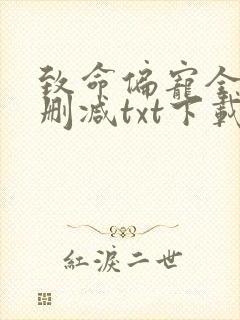 致命偏寵全
刪減txt下載
紅淚二世